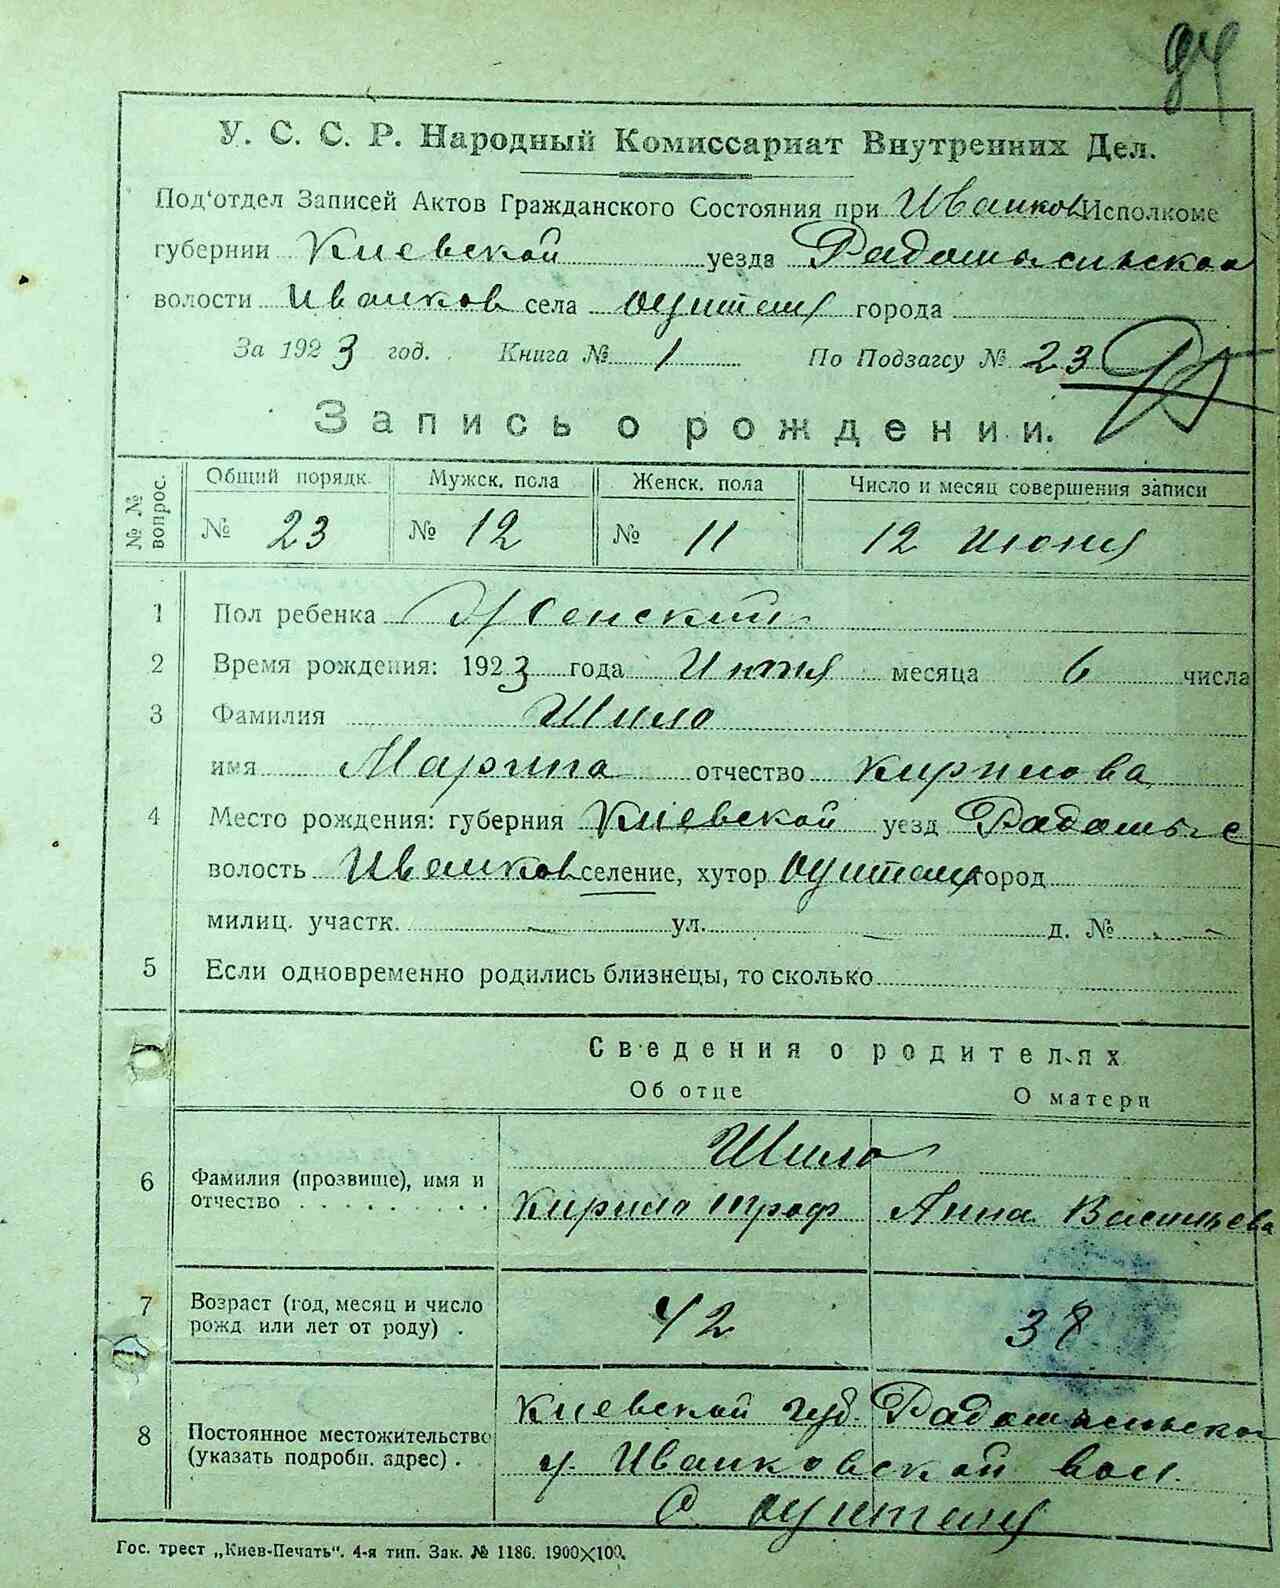 94
У. С. С. Р. Народный Комиссариат Внутренних Дел.
Под'отдел Записей Актов Гражданского Состояния при Иванков Исполкоме
губернии Киевской уезда Радомысльской
волости Иванков села города
За 1923 год. Книга № 1 По Подзагсу № 23
Запись о рождении.
№ № вопрос.
Общий порядк. Мужск. пола Женск. пола Число и месяц совершения записи
№ 23 № 12 № 11 12 Июня
1 Пол ребенка Женский
2 Время рождения: 1923 года Июня месяца 6 числа
3 Фамилия Шило
имя Марина отчество Кирилова
4 Место рождения: губерния Киевской уезд Радомыс
волость Иванков селение, хутор город
милиц. участк. ул. д. №
5 Если одновременно родились близнецы, то сколько
Сведения о родителях
Об отце О матери
Шило
6 Фамилия (прозвище), имя и
отчество Кирило Троф Анна Васильева
7 Возраст (год, месяц и число
рожд. или лет от роду) . 42 38
Киевской губ. Радомысльской
8 Постоянное местожительство
(указать подробн. адрес) . у. Иванковской вол.
С.
Гос. трест „Киев-Печать“. 4-я тип. Зак. № 1186. 1900×100.